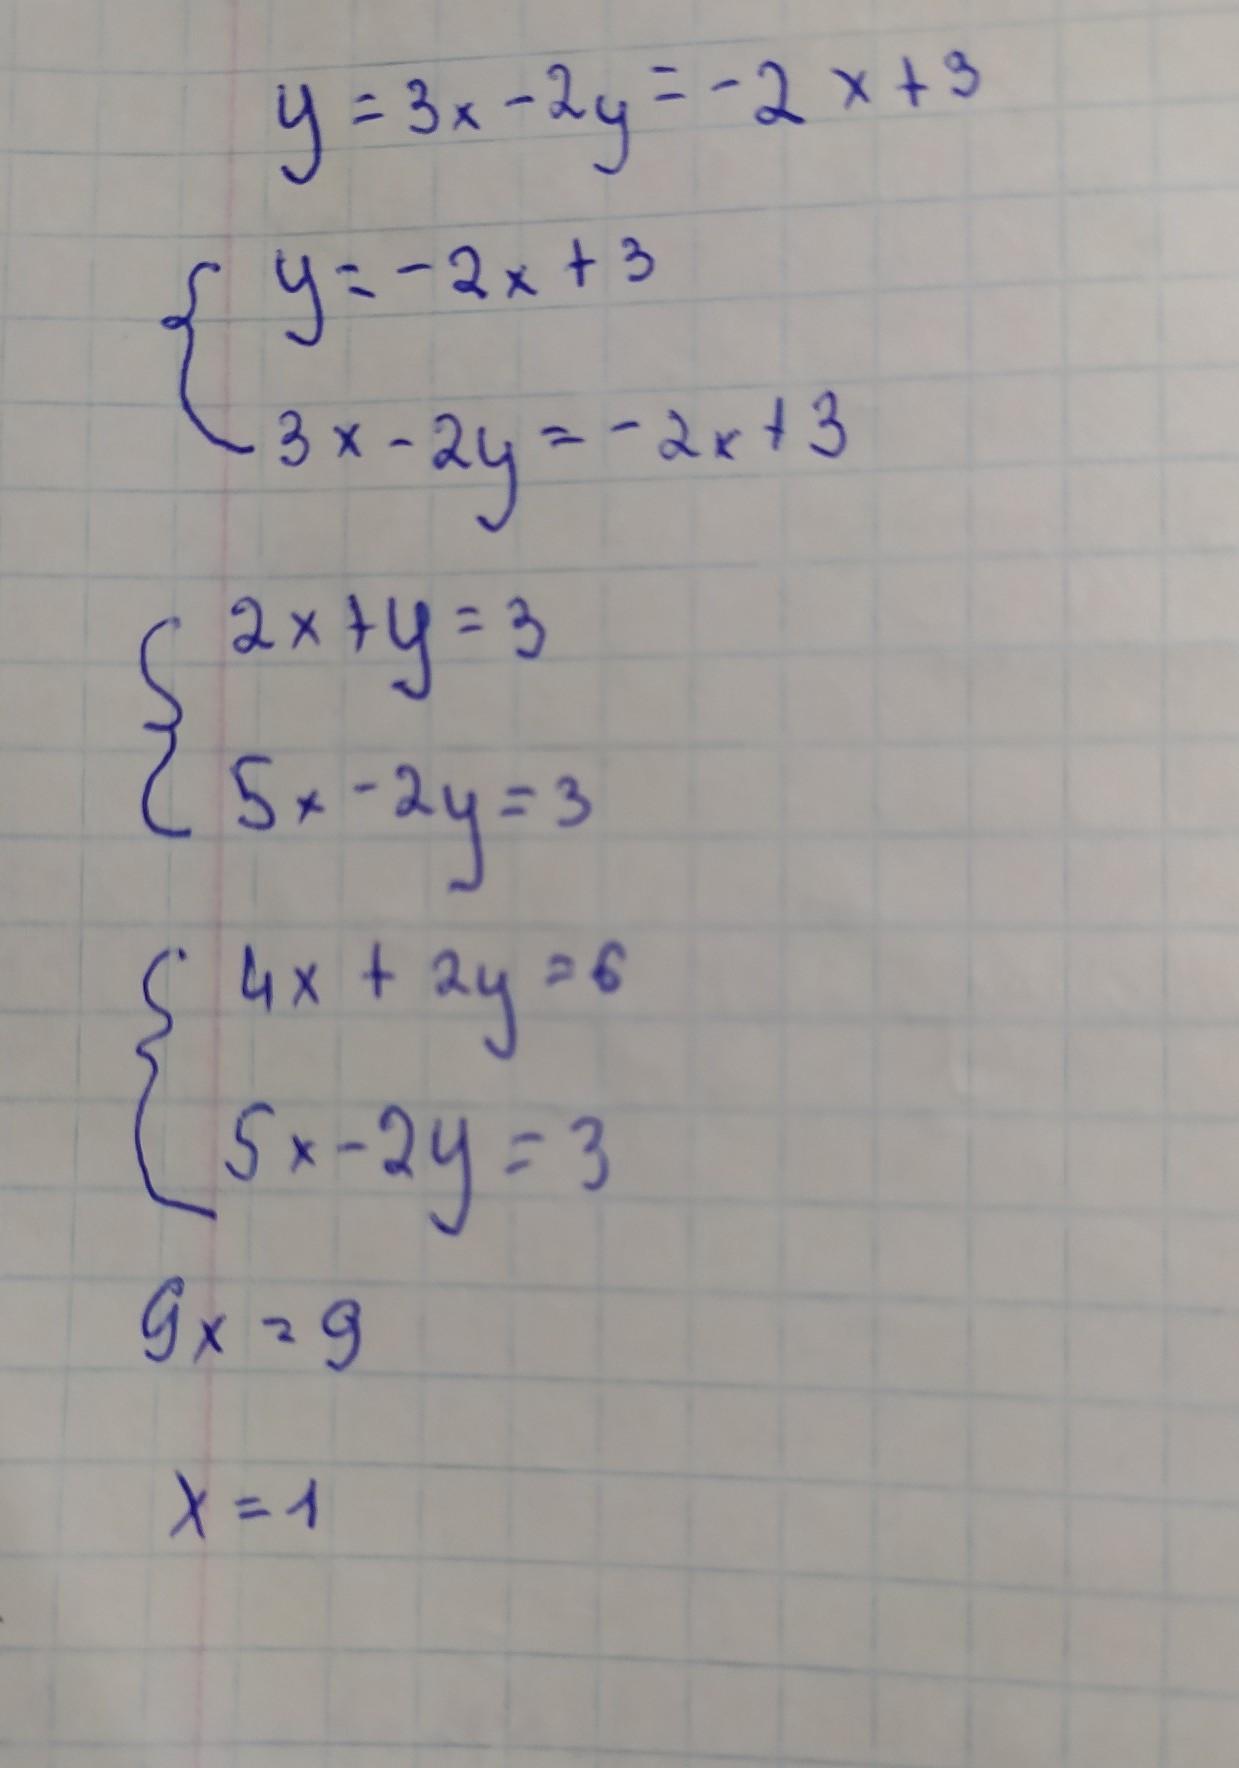 y = 3x - 2y = -2x + 3
{ y = -2x + 3
3x - 2y = -2x + 3
{ 2x + y = 3
5x - 2y = 3
{ 4x + 2y = 6
5x - 2y = 3
9x = 9
x = 1